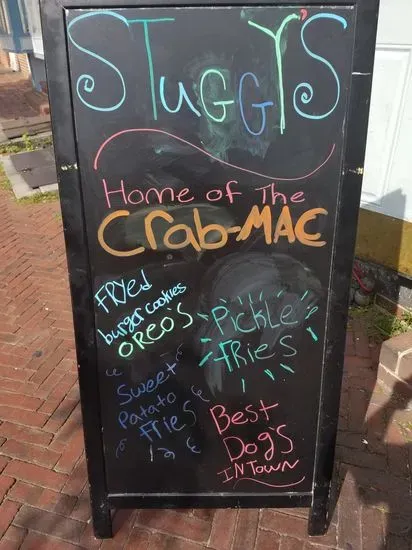 STuGGY'S
Home of The
Crab-MAC
FRYed
burger cookies
OREO'S
Pickle
fries
Sweet
Patato
fries
Best
Dog's
IN TOWN